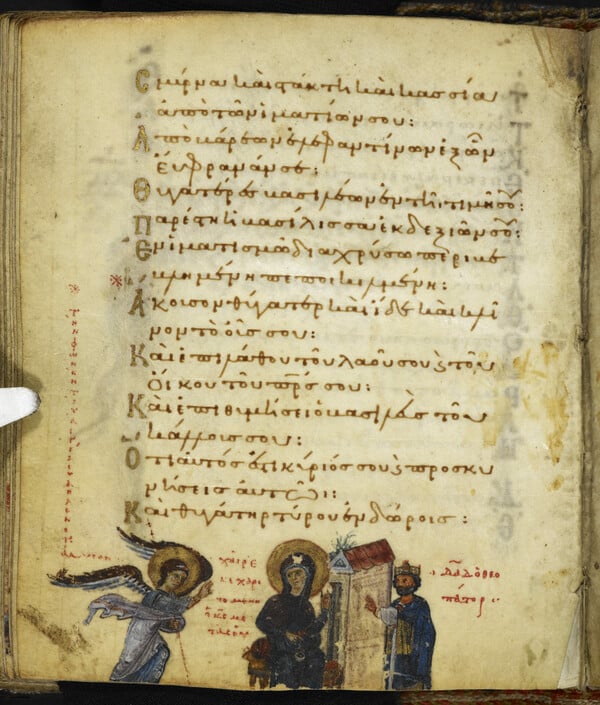 Σμύρνα καὶ στακτὴ καὶ κασσία
ἀπὸ τῶν ἱματίων σου:
Ἀπὸ βάρεων ἐλεφαντίνων ἐξ ὧν
ἔυφρανάν σε:
Θυγατέρες βασιλέων ἐν τῆ τιμῆ σου:
Παρέστη ἡ βασίλισσα ἐκ δεξιῶν σου:
Ἐν ἱματισμῶ διαχρύσω περιβε
βλημένη πεποικιλμένη:
Ἄκουσον θύγατερ καὶ ἴδε καὶ κλῖ
νον τὸ οὖς σου:
Καὶ ἐπιλάθου τοῦ λαοῦ σου ϗ τοῦ
οἴκου τοῦ πρς σου:
Καὶ ἐπιθυμήσει ὁ βασιλεὺς τοῦ
κάλλους σου:
Ὅτι αὐτός ἐστι κύριός σου ϗ προσκυ
νήσεις αὐτῶ:
Καὶ θυγάτηρ τύρου ἐν δώροις:
χαῖρε
κεχαρι
τωμένη
ὁ κς με
τὰ σοῦ
Δαδ ὁ θεο
πάτωρ